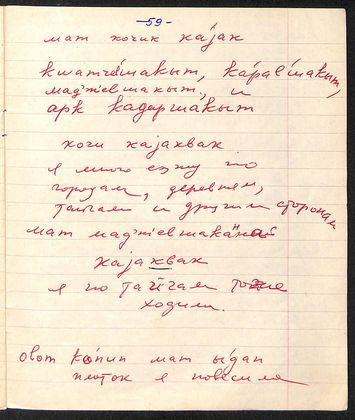 -59-
мат кочик кајак
кwатчšмакыт, кáралʼšмакыт,
маджеlšмакыт, и
арк кадармакыт
кочи кајахвак
я много езжу по
городам, деревням,
тайгам и другим сторонам
мат маджеlšмакäнä
кајахвак
я по тайгам тоже
ходила.
овот ко́пип мат ы́дап
платок я повесила